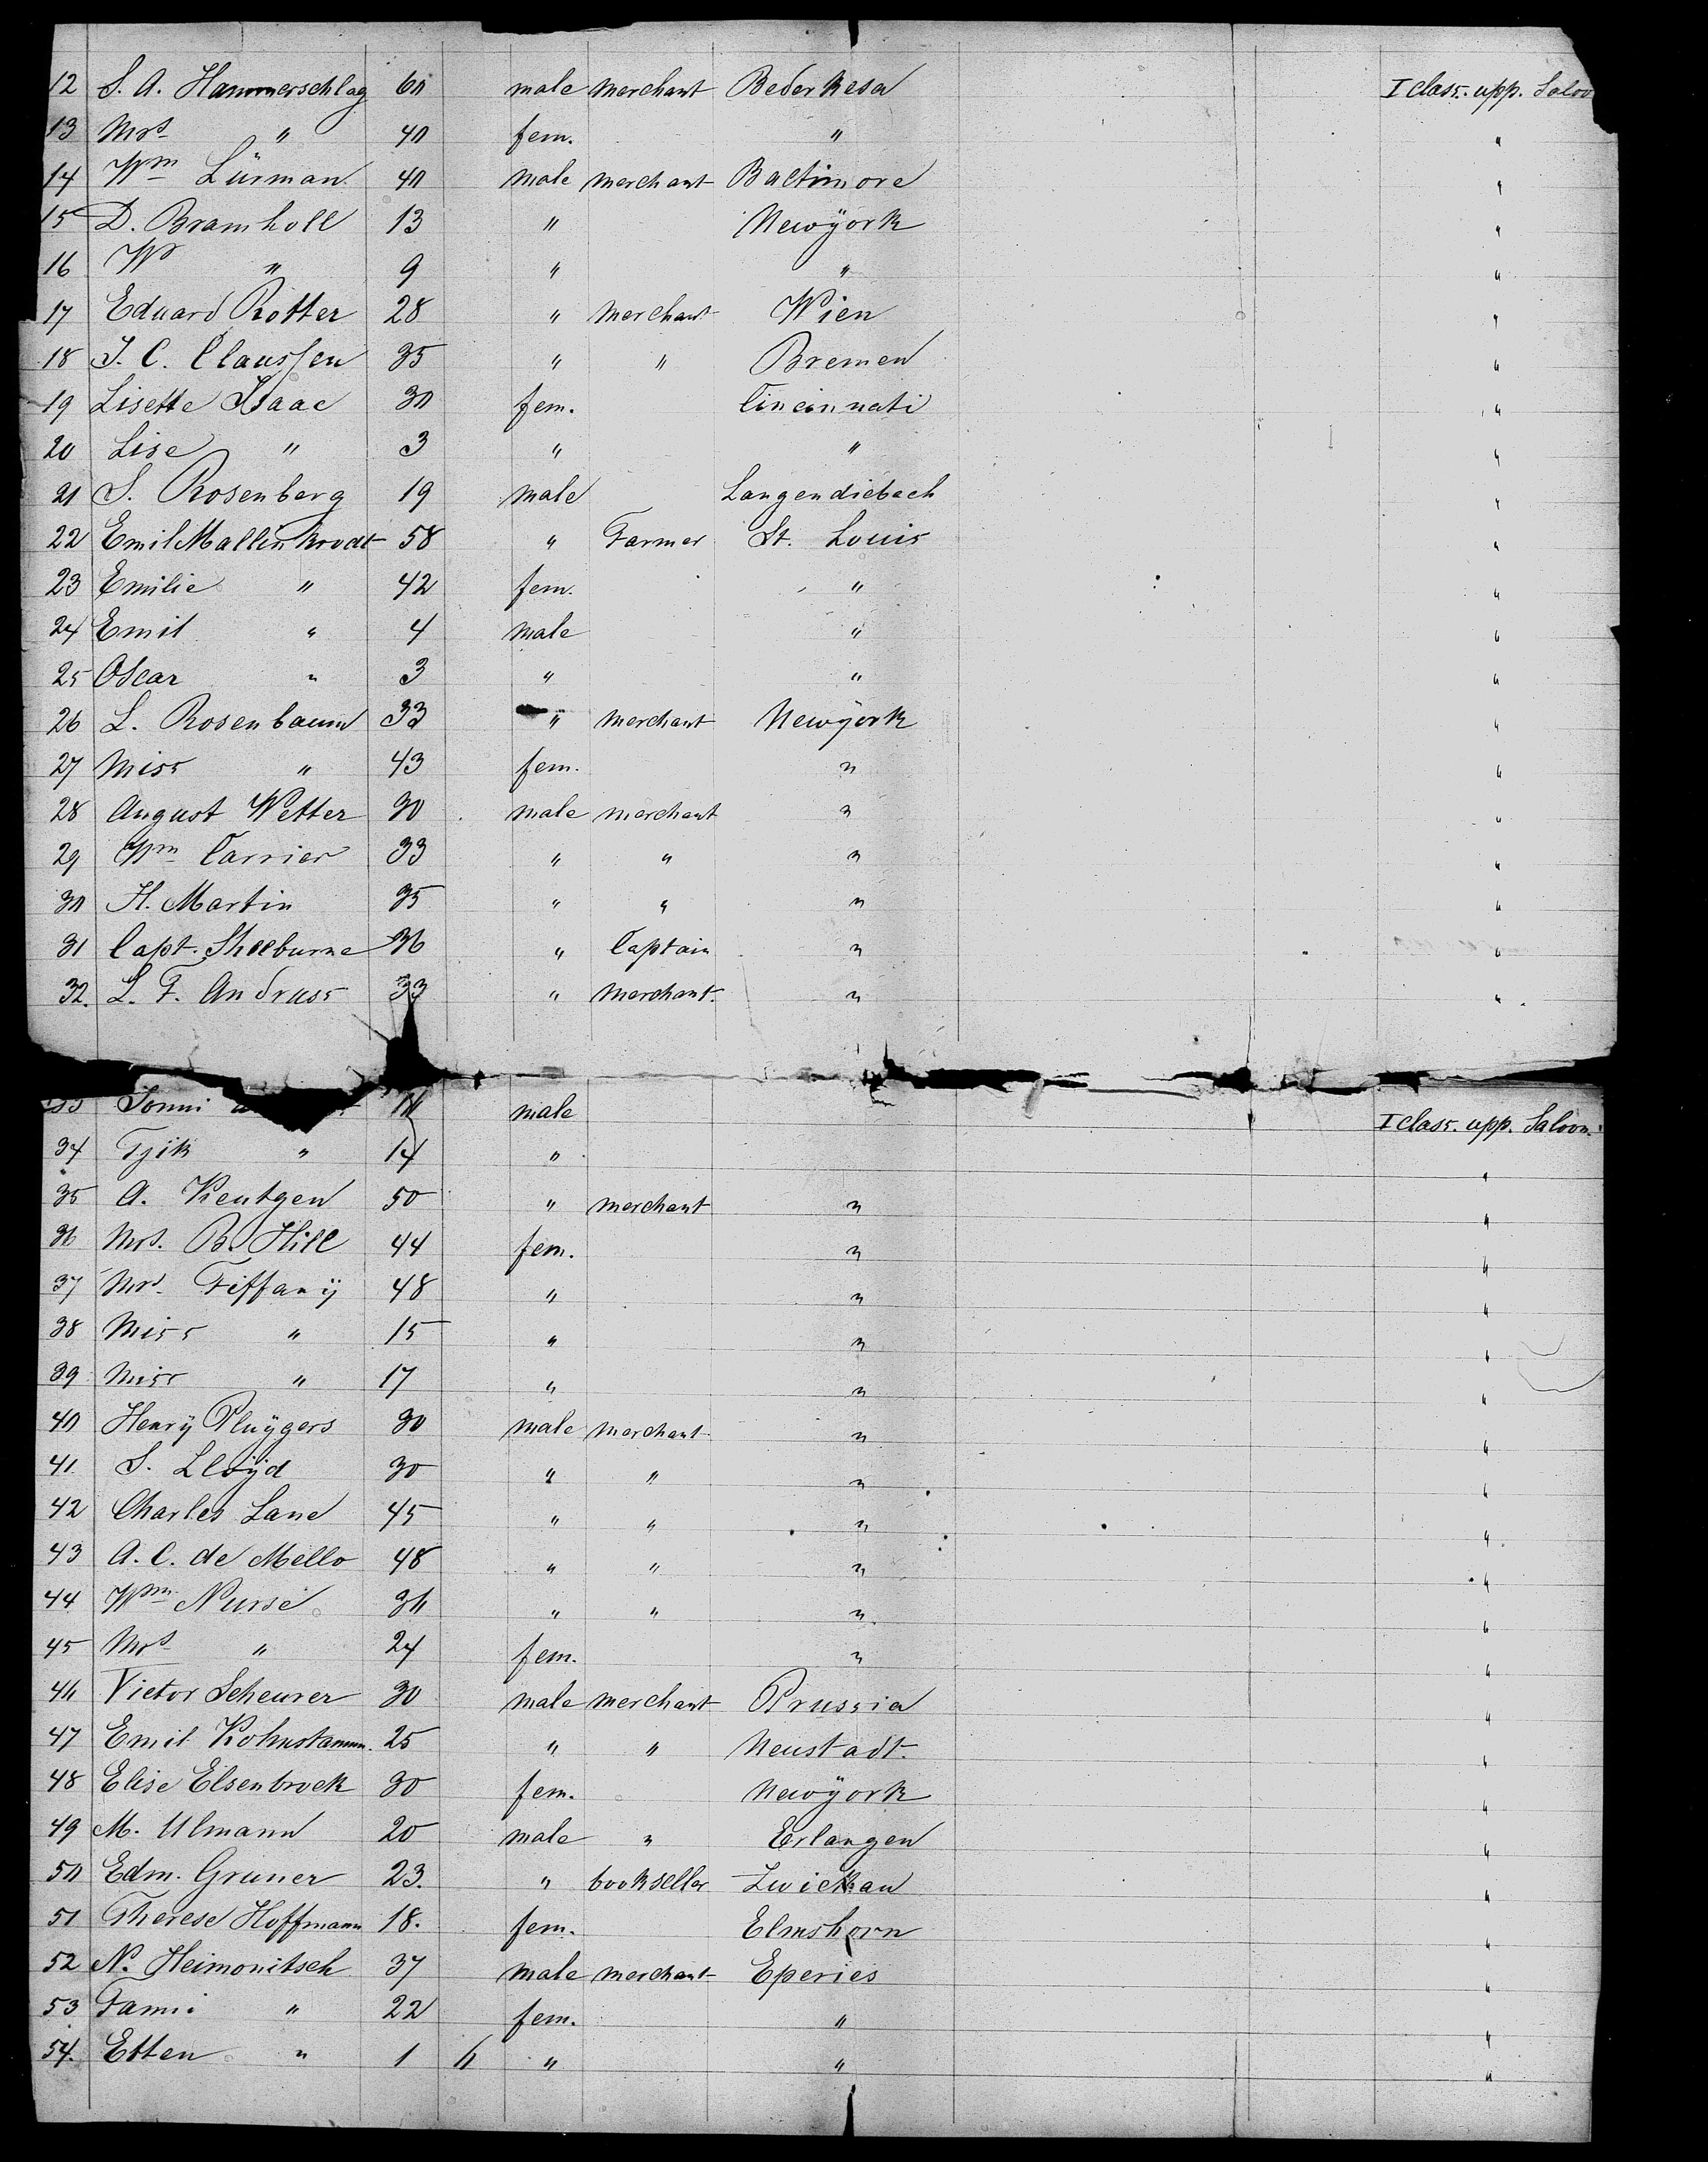 12 S. A. Hammerschlag 60 male merchant Bederkesa I class. upp. Saloo
13 Mrs " 40 fem. " "
14 Wm Lürman 40 male merchant Baltimore "
15 D. Bramholl 13 " Newÿork "
16 W " 9 " " "
17 Eduard Rotter 28 " merchant Wien "
18 J. C. Claussen 35 " " Bremen "
19 Lisette Isaac 30 fem. Cincinnati "
20 Lise " 3 " " "
21 S. Rosenberg 19 male Langendiebach "
22 Emil Mallinkrodt 58 " Farmer St. Louis "
23 Emilie " 42 fem. " "
24 Emil " 4 male " "
25 Oscar " 3 " " "
26 L. Rosenbaum 33 " merchant Newÿork "
27 Miss " 43 fem. " "
28 August Wetter 30 male merchant " "
29 Wm Carrier 33 " " " "
30 H. Martin 35 " " " "
31 Capt. Sheeburne 36 " Captain " "
32. L. F. Andruss 33 " merchant. " "
33 Tonni male I class. upp. Saloon.
34 Tjik " 14 " "
35 A. Keutgen 50 " merchant " "
36 Mrs. B. Hill 44 fem. " "
37 Mrs. Tiffanÿ 48 " " "
38 Miss " 15 " " "
39 Miss " 17 " " "
40 Henrÿ Pluÿgers 30 male merchant " "
41. S. Lloÿd 30 " " " "
42 Charles Lane 45 " " " "
43 A. C. de Mello 48 " " " "
44 Wm Nurse 36 " " " "
45 Mrs " 24 fem. " "
46 Victor Scheurer 30 male merchant Prussia "
47 Emil Kohnstamm. 25 " " Neustadt. "
48 Elise Elsenbrock 30 fem. Newÿork "
49 M. Ulmann 20 male " Erlangen "
50 Edm. Gruner 23. " bookseller Zwickau "
51 Therese Hoffmann 18. fem. Elmshorn "
52 N. Heimonitsch 37 male merchant Eperies "
53 Fanni " 22 fem. " "
54. Etten " 1 6 " " "